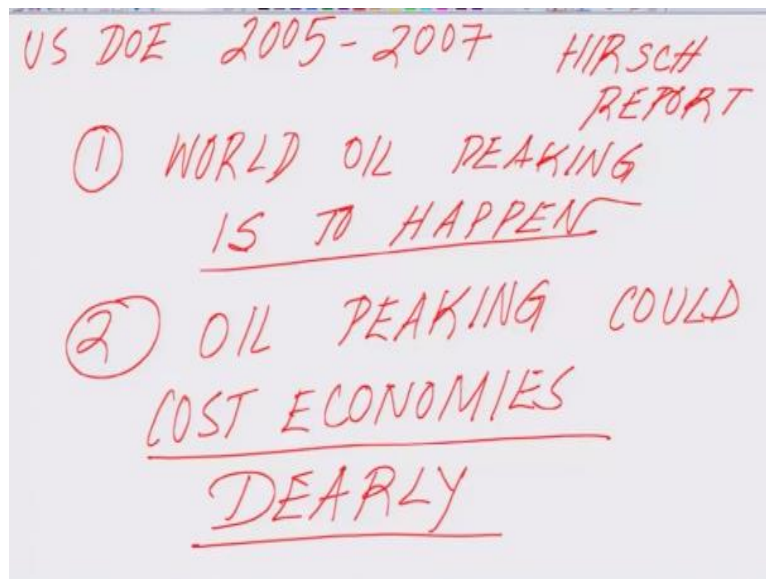 US DOE 2005-2007 HIRSCH
REPORT
① WORLD OIL PEAKING
IS TO HAPPEN
② OIL PEAKING COULD
COST ECONOMIES
DEARLY